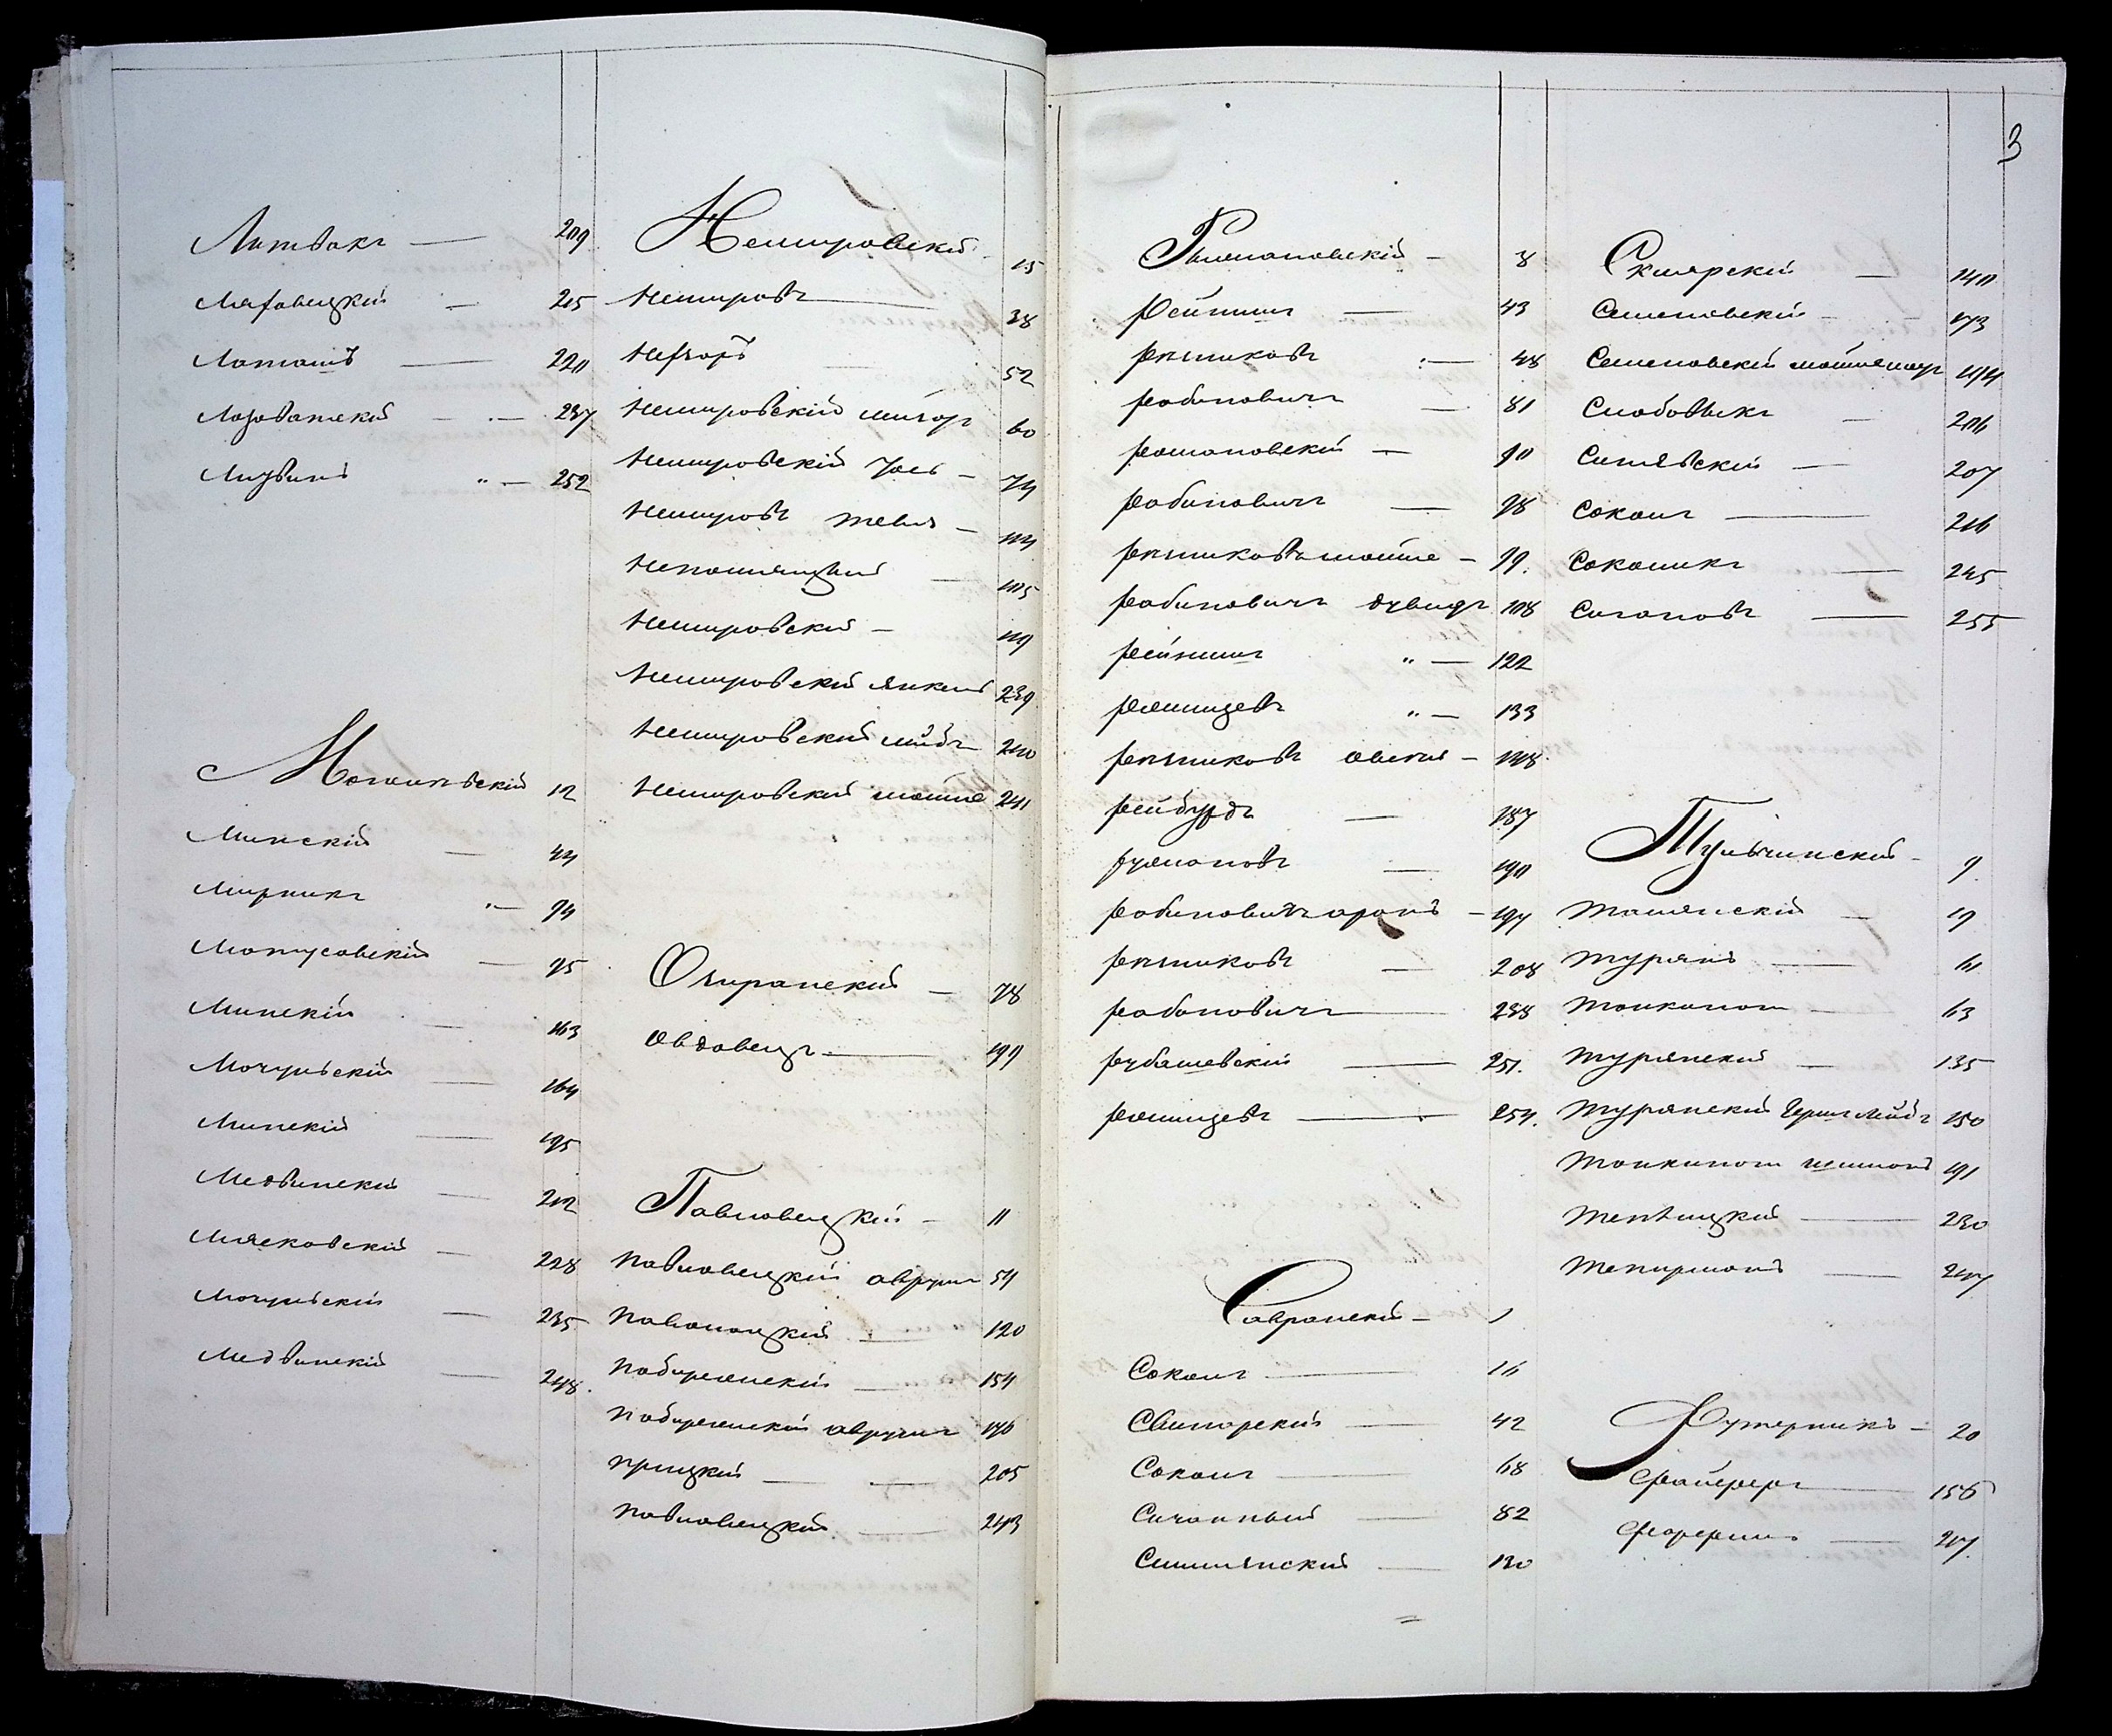 3
Литвакъ — 209
Ляховецкій — 215
Лотошъ — 220
Лозоватскій — 237
Лизвинъ " — 252
Могилевскій 12
Минскій — 44
Мирникъ " — 94
Мотусовскій — 95
Минскій — 163
Мочульскій — 164
Минскій — 195
Медвинскій — 212
Мясковскій — 228
Мочульскій — 235
Медвинскій — 248.
Немировскій 15
Немировъ — 38
52
Немировскій 60
Немировскій Іось — 74
Немировъ Тевія — 104
Непомнящій — 105
Немировскій — 119
Немировскій Янкель 239
Немировскій Лейбъ 240
Немировскій Мошко 241
Ольшанскій — 78
Овдовецъ — 199
Павловецкій — 11
Павловецкій Аврумъ 54
Паволоцкій — 120
Побережскій — 154
Побережскій Аврумъ 176
Прицкій — 205
Павловецкій — 243
Рымановскій — 8
Рейтманъ — 43
Резниковъ — 48
Рабиновичъ — 81
Romановскій — 90
Рабиновичъ — 98
Резниковъ Мошко — 99.
Рабиновичъ Дувидъ 108
122
Ромицевъ " — 133
Резниковъ Овсей — 148.
Рейбурдъ — 187
Румановъ — 190
Рабиновичъ Аронъ — 197
Резниковъ — 208
Рабиновичъ — 238
Рубашевскій — 251.
Ромицевъ — 254.
Савранскій — 1
Соколъ — 16
Свинарскій — 42
Соколъ — 68
Сичанный — 82
Смилянскій — 130
Склярскій — 140
Семеновскій — 173
Семеновскій 174
Слободыкъ — 206
Синявскій — 207
Соколъ — 216
Сокольникъ — 245
Сигановъ — 255
Тульчинскій — 9
Ташлянскій — 19
Турянъ — 61
Толкинош — 63
Турянскій — 135
Турянскій Герш Лейбъ 150
Толкинош 191
Теплицкій — 230
Теперманъ — 247
Футерникъ — 20
Файфферъ — 156
217.